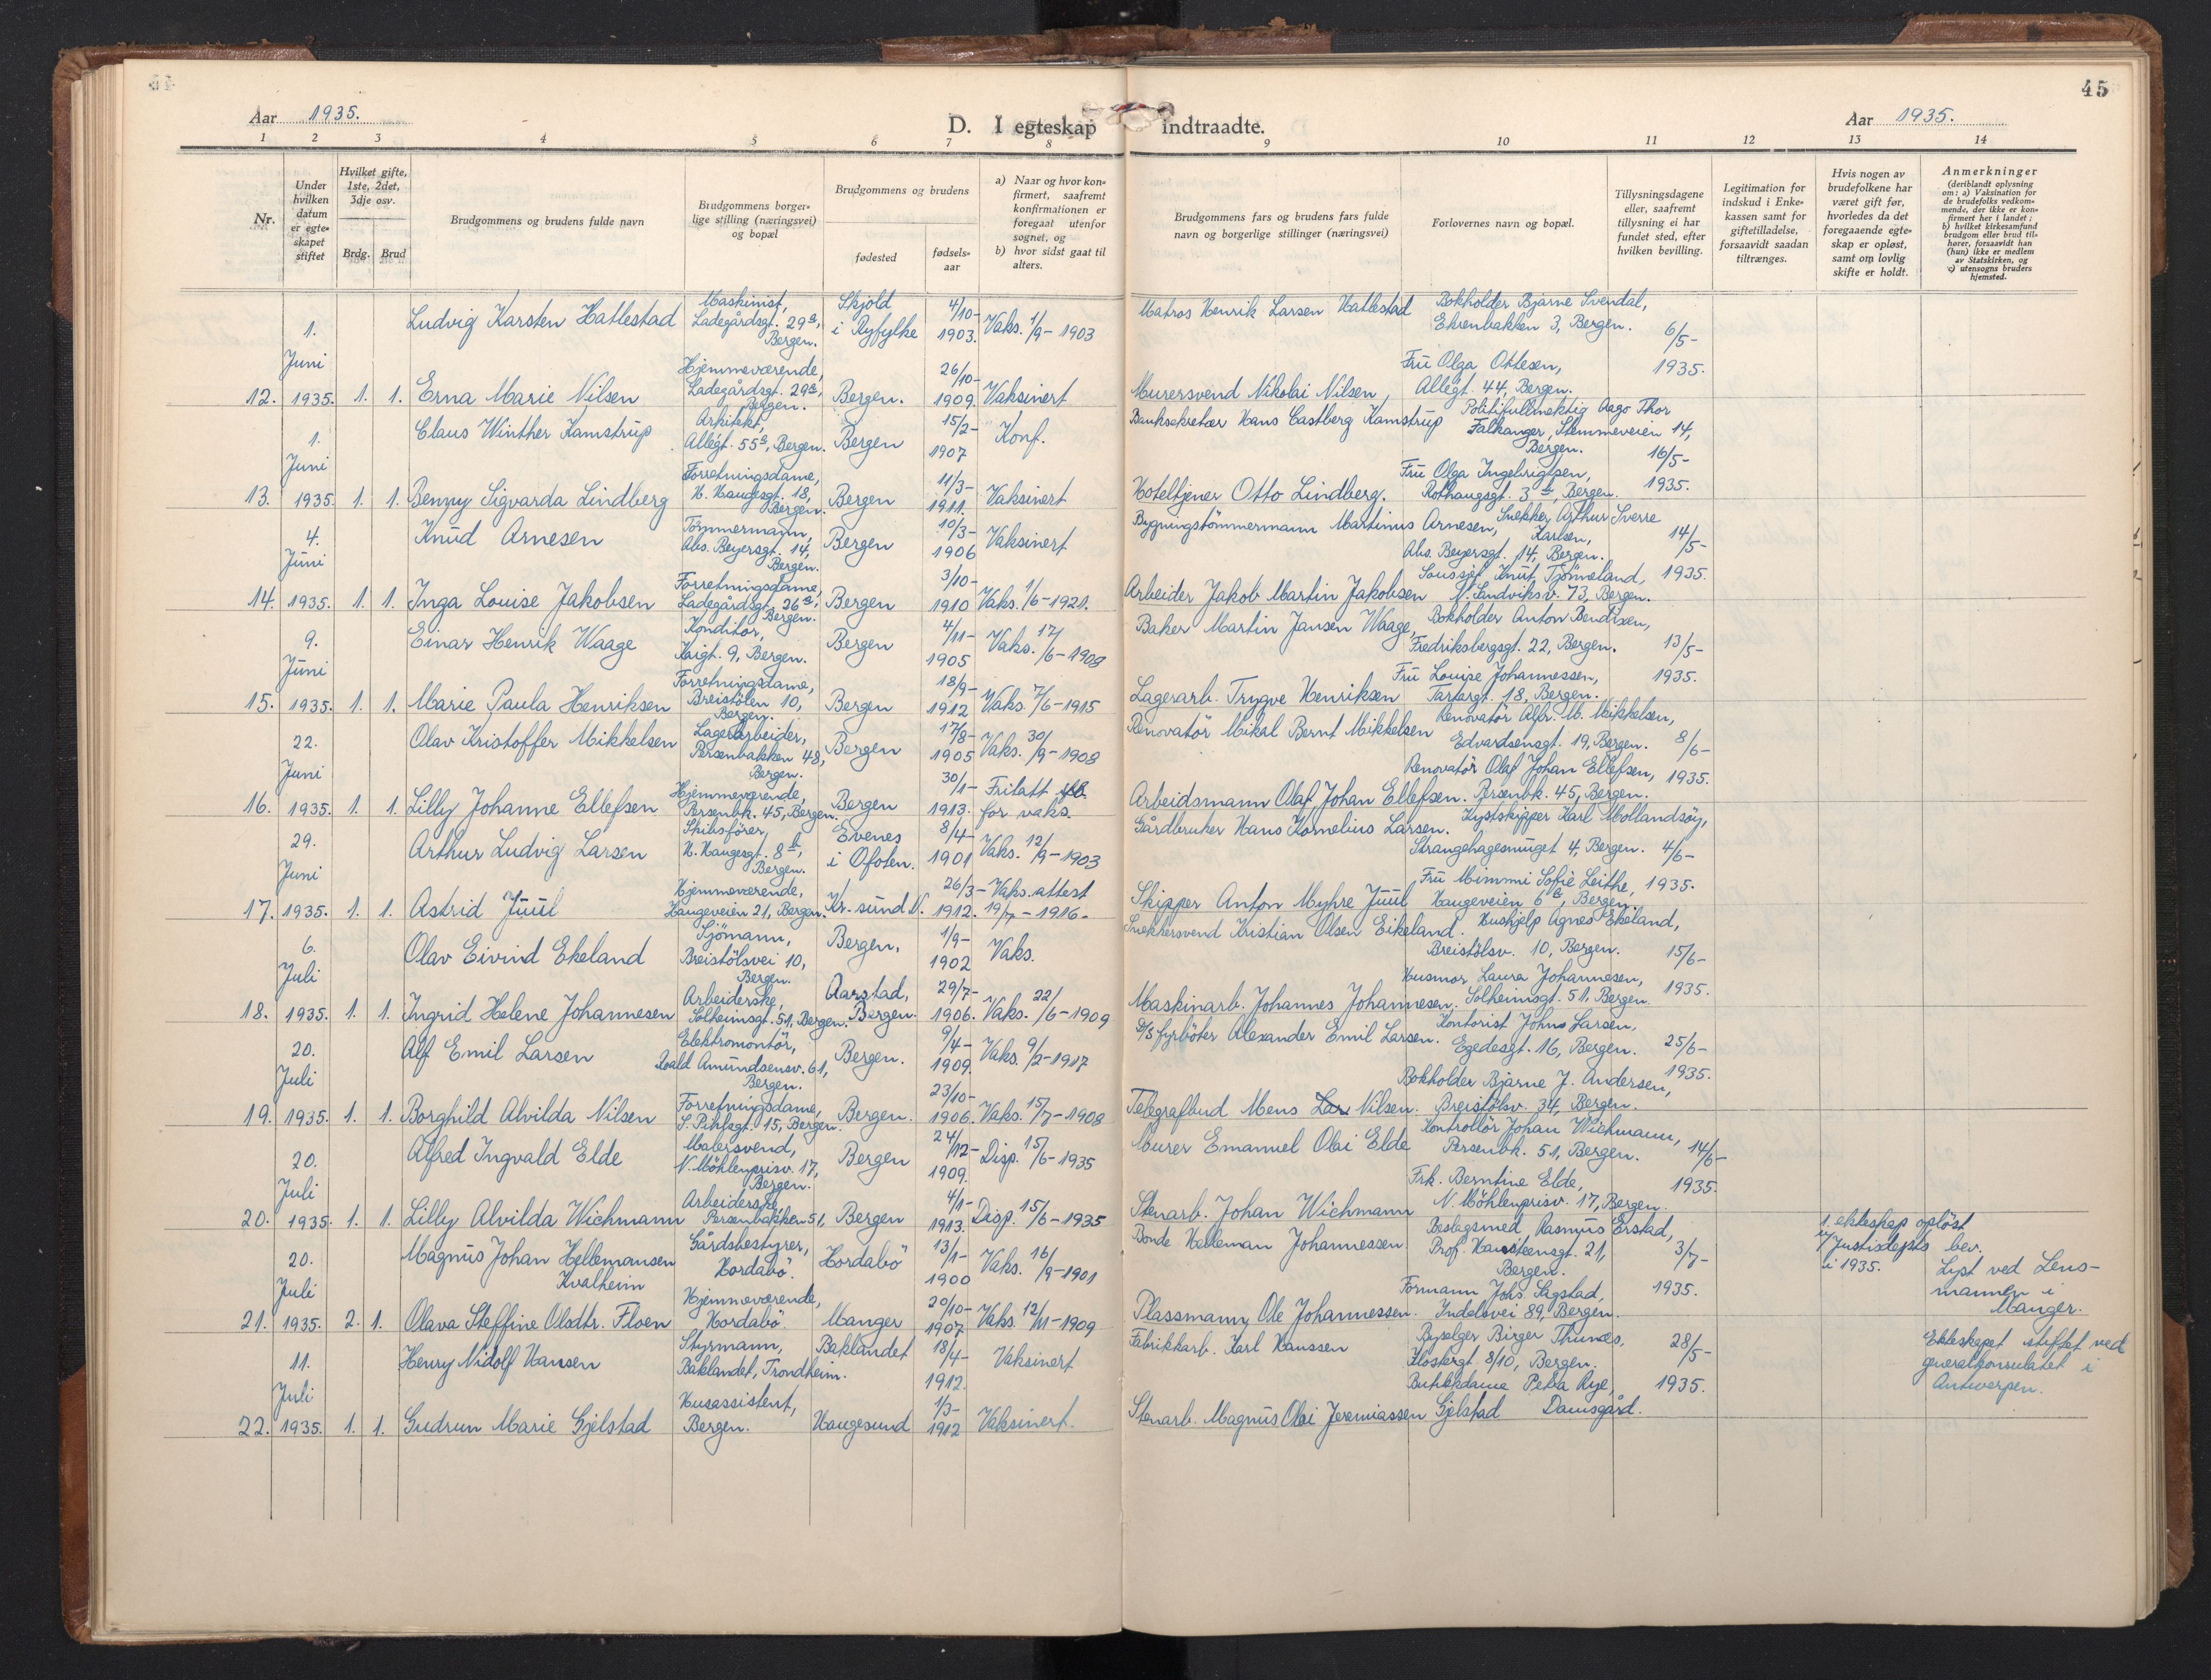 45
Aar 1935.
D. I egteskap indtraadte.
Aar 1935.
1 2 3 4 5 6 7 8 9 10 11 12 13 14
Nr.
Under hvilken datum er egte-skapet stiftet
Hvilket gifte, 1ste, 2det, 3dje osv.
Brdg. Brud
Brudgommens og brudens fulde navn
Brudgommens borger-lige stilling (næringsvei) og bopæl
Brudgommens og brudens
fødested
fødsels-aar
a) Naar og hvor kon-firmert, saafremt konfirmationen er foregaat utenfor sognet, og
b) hvor sidst gaat til alters.
Brudgommens fars og brudens fars fulde navn og borgerlige stillinger (næringsvei)
Forlovernes navn og bopæl.
Tillysningsdagene eller, saafremt tillysning ei har fundet sted, efter hvilken bevilling.
Legitimation for indskud i Enke-kassen samt for giftetilladelse, forsaavidt saadan tiltrænges.
Hvis nogen av brudefolkene har været gift før, hvorledes da det foregaaende egte-skap er opløst, samt om lovlig skifte er holdt.
Anmerkninger (deriblandt oplysning om: a) Vaksination for de brudefolks vedkom-mende, der ikke er kon-firmert her i landet; b) hvilket kirkesamfund brudgom eller brud til-hører, forsaavidt han (hun) ikke er medlem av Statskirken, og c) utensogns bruders hjemsted.
1. Juni Ludvig Karsten Hatlestad Maskinist, Ladegårdsgt. 29a, Bergen. Skjold i Ryfylke 4/10-1903. Vaks. 1/9-1903 Matros Henrik Larsen Hatlestad Bokholder Bjarne Svendal, Ekrenbakken 3, Bergen. 6/5-
12. 1935. 1. 1. Erna Marie Nilsen Hjemmeværende, Ladegårdsgt. 29a, Bergen. Bergen. 26/10-1909. Vaksinert Murersvend Nikolai Nilsen, Fru Olga Ottesen, Allégt. 44, Bergen. 1935.
1. Juni Claus Winther Kamstrup Arkitekt, Allégt. 55a, Bergen. Bergen 15/2-1907 Konf. Banksekretær Hans Castberg Kamstrup Politifullmektig Aage Thor Falkanger, Stemmeveien 14, Bergen. 16/5-
13. 1935. 1. 1. Benny Sigvarda Lindberg Forretningsdame, H. Haugesgt. 18, Bergen. Bergen 11/3-1911. Vaksinert Hoteltjener Otto Lindberg. Fru Olga Ingebrigtsen, Rothaugsgt. 3b, Bergen. 1935.
4. Juni Knud Arnesen Tømmermann, Abs. Beyersgt. 14, Bergen. Bergen 10/3-1906 Vaksinert Bygningstömmermann Martinus Arnesen, Snekker Arthur Sverre Karlsen, Abs. Beyersgt. 14, Bergen. 14/5-
14. 1935. 1. 1. Inga Louise Jakobsen Forretningsdame, Ladegårdsgt. 26a, Bergen. Bergen 3/10-1910 Vaks. 1/6-1921. Arbeider Jakob Martin Jakobsen Soussjef Knut Tjönneland, N. Sandviksv. 73, Bergen. 1935.
9. Juni Einar Henrik Waage Konditor, Kaigt. 9, Bergen. Bergen 4/11-1905 Vaks. 17/6-1908 Baker Martin Jansen Waage, Bokholder Anton Bendixen, Fredriksbergsgt. 22, Bergen. 13/5-
15. 1935. 1. 1. Marie Paula Henriksen Forretningsdame, Breistölen 10, Bergen. Bergen 18/9-1912 Vaks. 7/6-1915 Lagerarb. Trygve Henriksen Fru Louise Johannessen, Tartargt. 18, Bergen. 1935.
22. Juni Olav Kristoffer Mikkelsen Lagerarbeider, Persenbakken 48, Bergen. Bergen 17/8-1905 Vaks. 30/9-1908 Renovatör Mikal Bernt Mikkelsen Renovatör Alfr. M. Mikkelsen, Edvardsensgt. 19, Bergen. 8/6-
16. 1935. 1. 1. Lilly Johanne Ellefsen Hjemmeværende, Persenbk. 45, Bergen. Bergen 30/1-1913. Fritatt for vaks. Arbeidsmann Olaf Johan Ellefsen. Renovatör Olaf Johan Ellefsen, Persenbk. 45, Bergen. 1935.
29. Juni Arthur Ludvig Larsen Skibsförer, H. Haugesgt. 8b, Bergen. Evenes i Ofoten. 8/4-1901 Vaks. 12/9-1903 Gårdbruker Hans Kornelius Larsen. Kystskipper Karl Mollandsöy, Strangehagesmuget 4, Bergen. 4/6-
17. 1935. 1. 1. Astrid Juul Hjemmeværende, Haugeveien 21, Bergen. Kr.sund N. 26/3-1912. Vaks.attest 19/7-1916- Skipper Anton Myhre Juul Fru Mimmi Sofie Leithe, Haugeveien 6a, Bergen. 1935.
6. Juli Olav Eivind Ekeland Sjömann, Breistölsvei 10, Bergen. Bergen. 1/9-1902 Vaks. Snekkersvend Kristian Olsen Eikeland. Hushjelp Agnes Ekeland, Breistölsv. 10, Bergen. 15/6-
18. 1935. 1. 1. Ingrid Helene Johannesen Arbeiderske, Solheimsgt. 51, Bergen. Aarstad, Bergen. 29/7-1906. Vaks. 22/6-1909 Maskinarb. Johannes Johannesen. Husmor Laura Johannesen, Solheimsgt. 51, Bergen. 1935.
20. Juli Alf Emil Larsen Elektromontör, Roald Amundsensv. 61, Bergen. Bergen. 9/4-1909. Vaks. 9/2-1917 D/S fyrböter Alexander Emil Larsen. Kontorist Johns Larsen, Egedesgt. 16, Bergen. 25/6-
19. 1935. 1. 1. Borghild Alvilda Nilsen Forretningsdame, S. Pihlsgt. 15, Bergen. Bergen. 23/10-1906. Vaks. 15/7-1908 Telegrafbud Mons Nilsen. Bokholder Bjarne J. Andersen, Breistölsv. 34, Bergen. 1935.
20. Juli Alfred Ingvald Elde Malersvend, N. Möhlenprisv. 17, Bergen. Bergen 24/12-1909. Disp. 15/6-1935 Murer Emanuel Olai Elde Kontrollör Johan Wichmann, Persenbk. 51, Bergen. 14/6-
20. 1935. 1. 1. Lilly Alvilda Wichmann Arbeiderske, Persenbakken 51, Bergen 4/1-1913. Disp. 15/6-1935 Stenarb. Johan Wichmann Frk. Berntine Elde, N. Möhlenprisv. 17, Bergen. 1935.
20. Juli Magnus Johan Hellemansen Kvalheim Gårdsbestyrer, Hordabö. Hordabö 13/1-1900 Vaks. 16/9-1901 Bonde Helleman Johannessen Beslagsmed Rasmus Erstad, Prof. Hansteensgt. 21, Bergen. 3/7- 1. ekteskap oplöst v/ Justisdepts bev. i 1935. Lyst ved Lens-mannen i Manger.
21. 1935. 2. 1. Olava Steffine Olsdtr. Floen Hjemmeværende, Hordabö. Manger 20/10-1907 Vaks. 12/11-1909 Plassmann Ole Johannessen. Formann Johs. Sagstad, Indalsvei 89, Bergen. 1935.
11. Juli Henry Nidolf Hansen Styrmann, Baklandet, Trondheim. Baklandet 18/4-1912. Vaksinert Fabrikkarb. Karl Hanssen Byselger Birger Thunæs, Klostergt. 8/10, Bergen. 28/5- Ekteskapet stiftet ved generalkonsulatet i Antwerpen.
22. 1935. 1. 1. Gudrun Marie Gjelstad Husassistent, Bergen. Haugesund 1/3-1912 Vaksinert. Stenarb. Magnus Olai Jeremiassen Gjelstad Butikkdame Petra Rye, Damsgård. 1935.